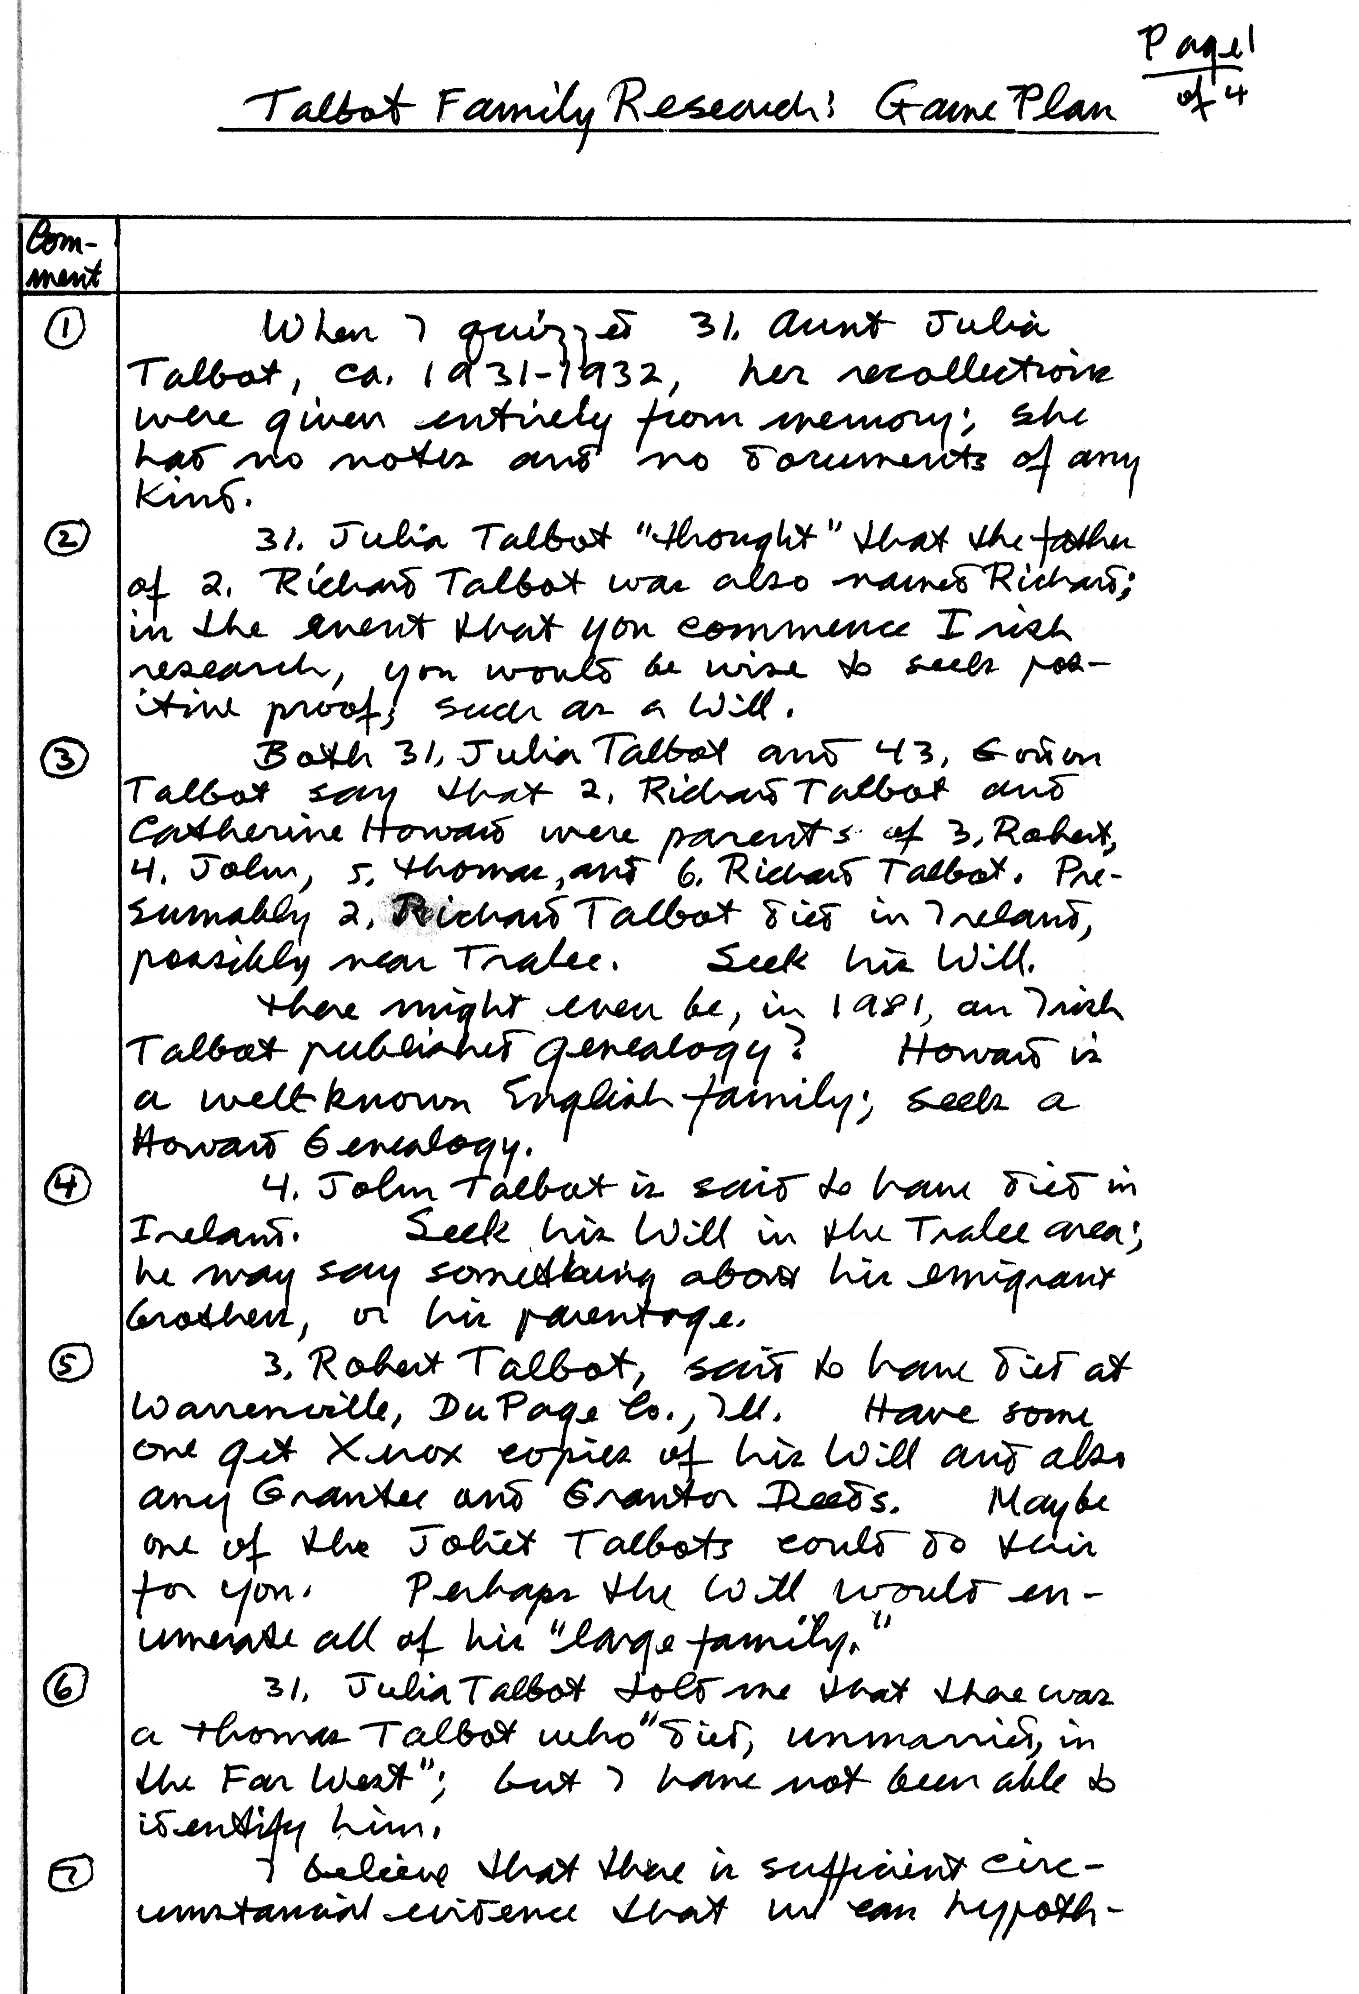 Page 1
of 4
Talbot Family Research: Game Plan
Com-
ment
① When I quizzed 31. Aunt Julia
Talbot, ca. 1931-1932, her recollections
were given entirely from memory; she
had no notes and no documents of any
kind.
② 31. Julia Talbot "thought" that the father
of 2. Richard Talbot was also named Richard;
in the event that you commence Irish
research, you would be wise to seek pos-
itive proof, such as a Will.
③ Both 31. Julia Talbot and 43.
Talbot say that 2. Richard Talbot and
Catherine Howard were parents of 3. Robert,
4. John, 5. Thomas, and 6. Richard Talbot. Pre-
sumably 2. Richard Talbot died in Ireland,
possibly near Tralee. Seek his Will.
There might even be, in 1981, an Irish
Talbot published genealogy? Howard is
a well-known English family; seek a
Howard Genealogy.
④ 4. John Talbot is said to have died in
Ireland. Seek his Will in the Tralee area;
he may say something about his emigrant
brothers, or his parentage.
⑤ 3. Robert Talbot, said to have died at
Warrenville, DuPage Co., Ill. Have some
one get Xerox copies of his Will and also
any Grantee and Grantor Deeds. Maybe
one of the Joliet Talbots could do this
for you. Perhaps the Will would en-
umerate all of his "large family."
⑥ 31. Julia Talbot told me that there was
a Thomas Talbot who "died, unmarried, in
the Far West"; but I have not been able to
identify him.
⑦ I believe that there is sufficient circ-
umstancial evidence that we can hypoth-